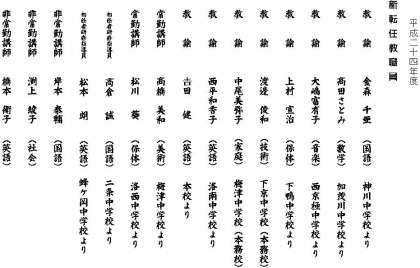 平成二十四年度
新転任教職員
教諭 金森 千亜 (国語) 神川中学校より
教諭 高田さとみ (数学) 加茂川中学校より
教諭 大嶋富有子 (音楽) 西京極中学校より
教諭 上村 宣治 (保体) 下鴨中学校より
教諭 渡邊 俊和 (技術) 下京中学校(本務校)
教諭 中尾美弥子 (家庭) 梅津中学校(本務校)
教諭 西平和香子 (英語) 洛南中学校より
教諭 吉田 健 (英語) 本校より
常勤講師 高橋 美和 (美術) 梅津中学校より
常勤講師 松川 葵 (保体) 洛西中学校より
初任者研修指導員 高倉 誠 (国語) 二条中学校より
初任者研修指導員 松本 朗 (英語) 蜂ヶ岡中学校より
非常勤講師 岸本 泰輔 (国語)
非常勤講師 渕上 綾子 (社会)
非常勤講師 橋本 衛子 (英語)